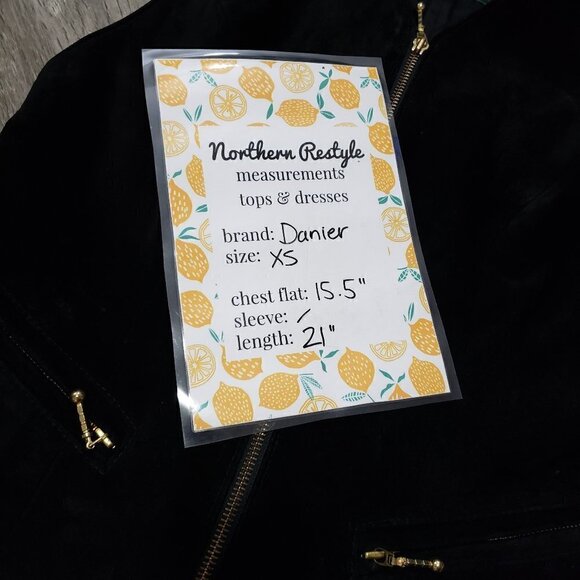 Northern Restyle
measurements
tops & dresses
brand: Danier
size: XS
chest flat: 15.5"
sleeve: /
length: 21"